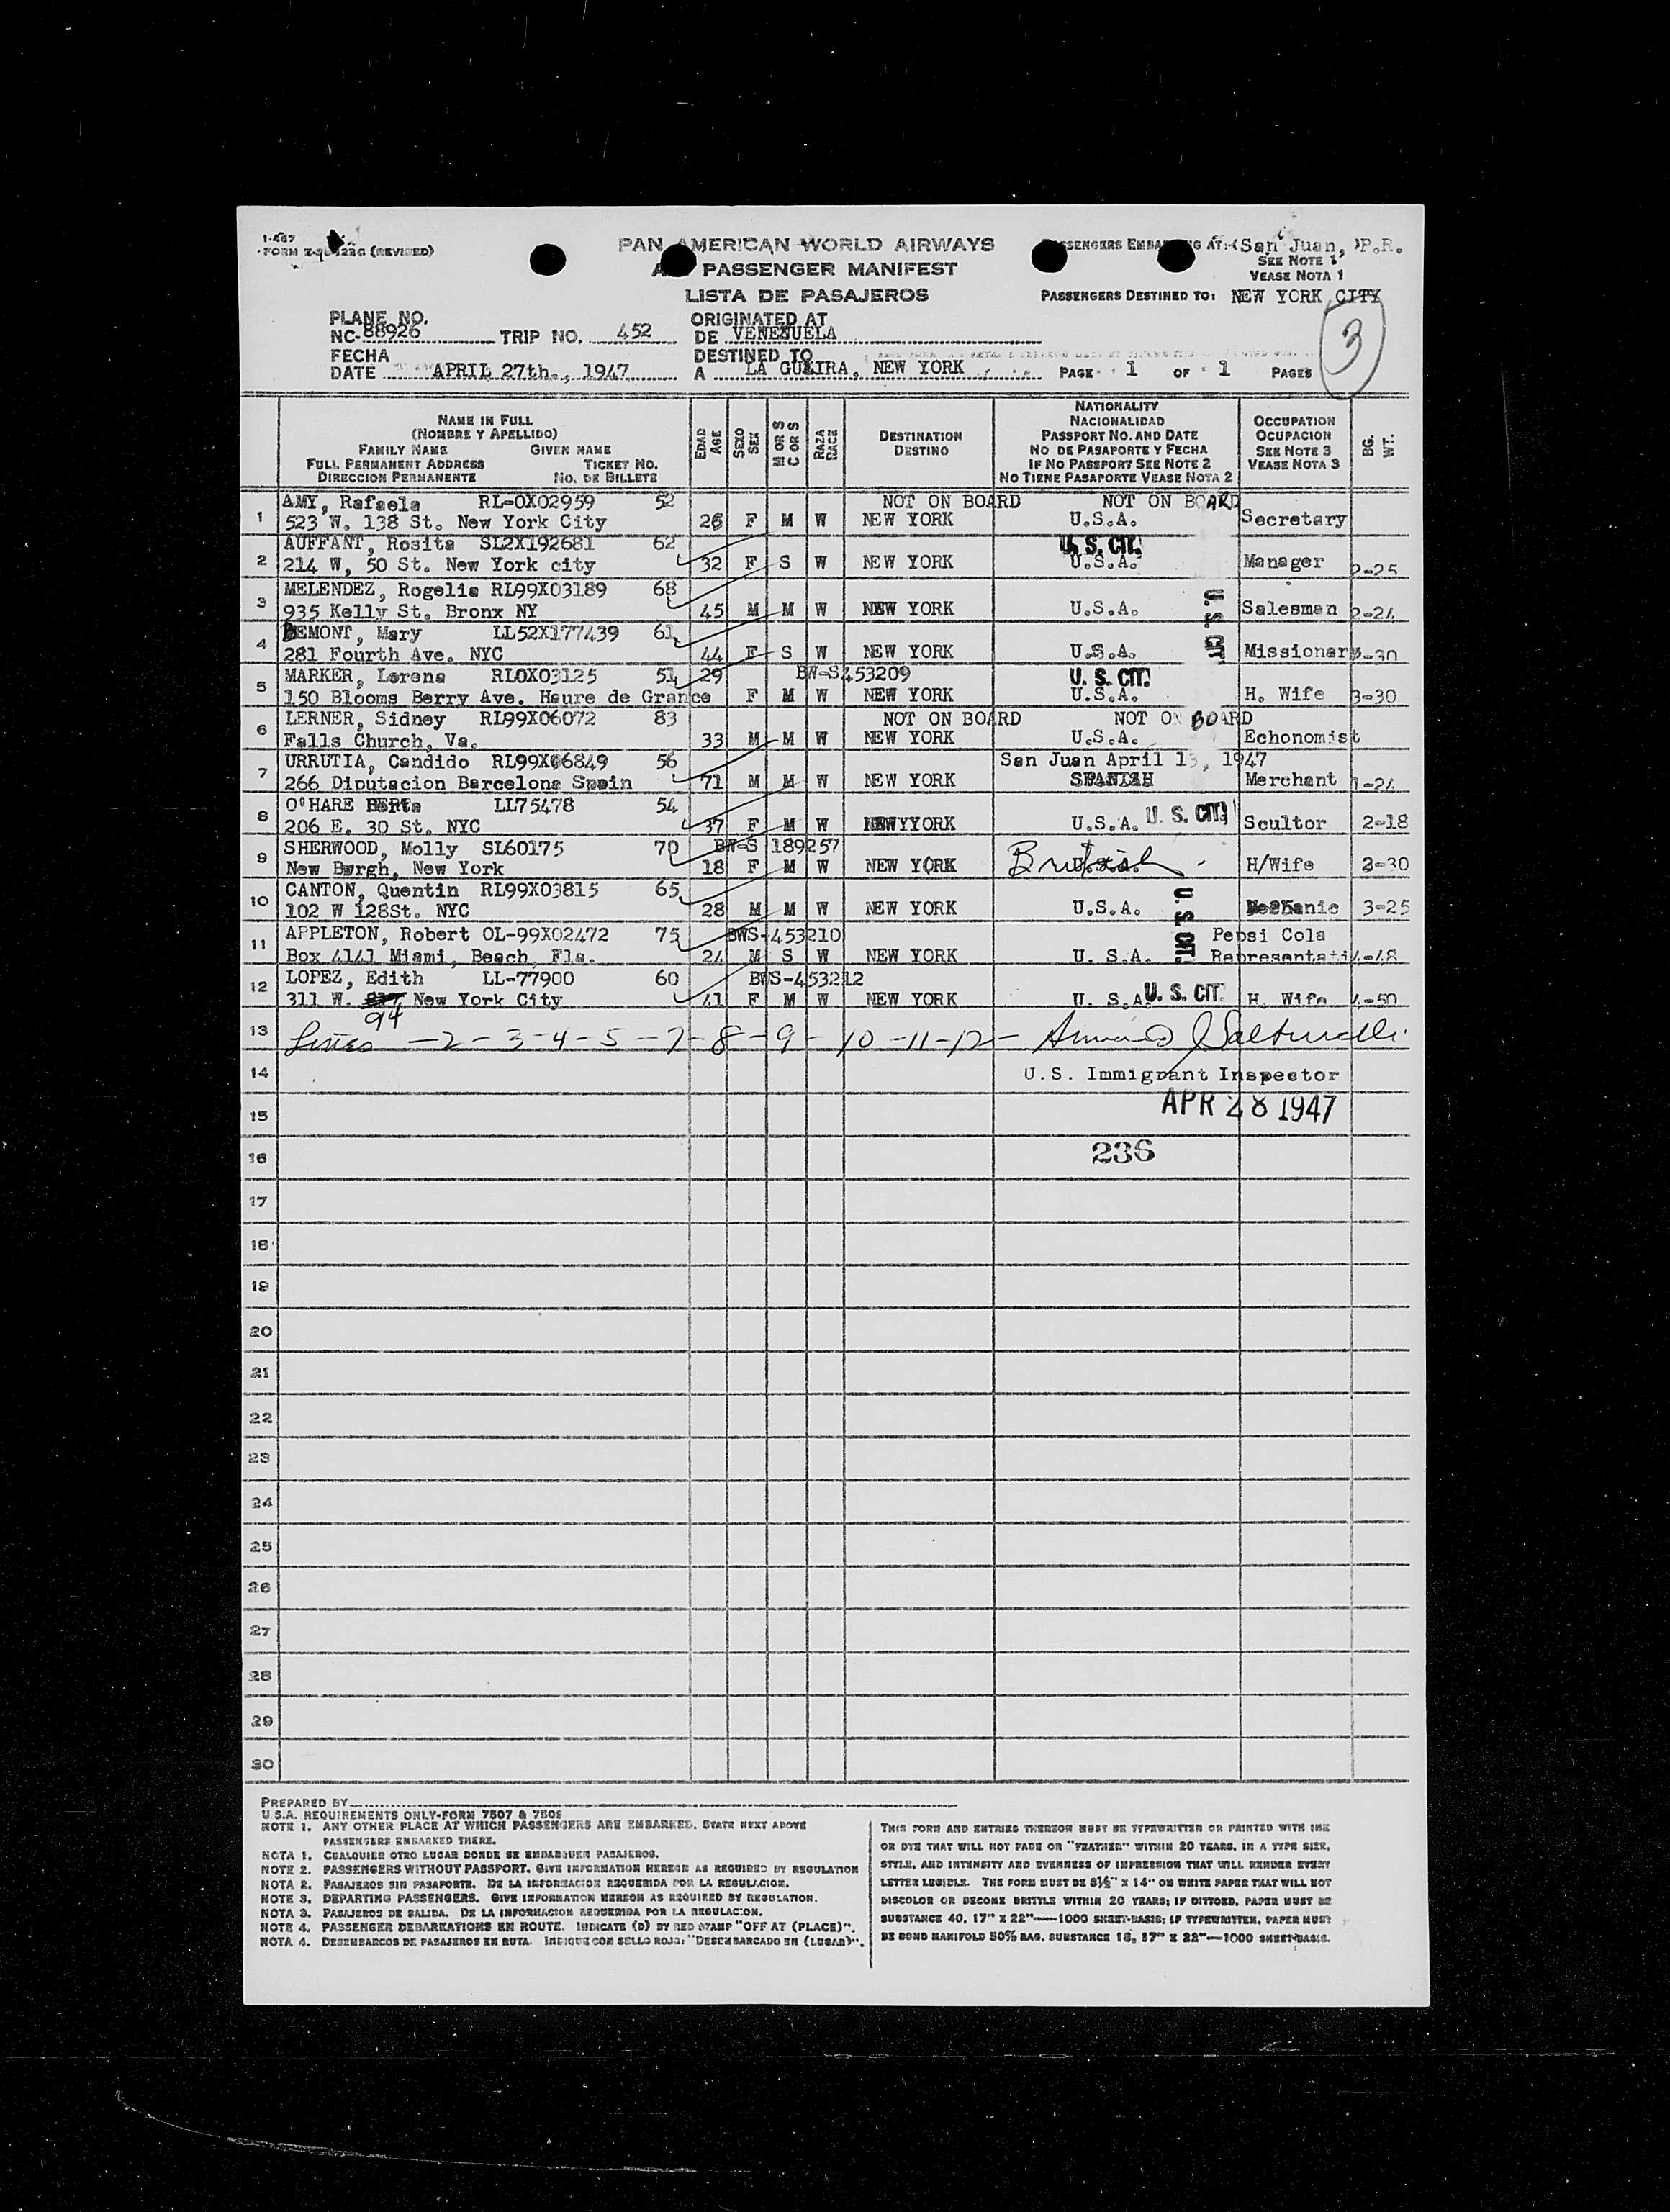 1-467
FORM (REVISED)
PAN AMERICAN WORLD AIRWAYS
PASSENGER MANIFEST
LISTA DE PASAJEROS
AT: (San Juan, )P.R.
SEE NOTE 1
VEASE NOTA 1
PASSENGERS DESTINED TO: NEW YORK CITY
3
PLANE NO.
NC-88926 TRIP NO. 452
ORIGINATED AT
DE VENEZUELA
FECHA
DATE APRIL 27th., 1947
DESTINED TO
A LA GUAIRA, NEW YORK
PAGE 1 OF 1 PAGES
NAME IN FULL
(NOMBRE Y APELLIDO)
FAMILY NAME GIVEN NAME
FULL PERMANENT ADDRESS TICKET NO.
DIRECCION PERMANENTE NO. DE BILLETE
EDAD AGE
SEXO SEX
M OR S C OR S
RAZA RACE
DESTINATION
DESTINO
NATIONALITY
NACIONALIDAD
PASSPORT NO. AND DATE
NO DE PASAPORTE Y FECHA
IF NO PASSPORT SEE NOTE 2
NO TIENE PASAPORTE VEASE NOTA 2
OCCUPATION
OCUPACION
SEE NOTE 3
VEASE NOTA 3
BG. WT.
AMY, Rafaela RL-OX02959 52 NOT ON BOARD NOT ON BOARD
1 523 W. 138 St. New York City 26 F M W NEW YORK U.S.A. Secretary
AUFFANT, Rosita SL2X192681 62 U. S. CIT.
2 214 W, 50 St. New York city 32 F S W NEW YORK U.S.A. Manager 2-25
MELENDEZ, Rogelia RL99X03189 68
3 935 Kelly St. Bronx NY 45 M M W NEW YORK U.S.A. U. S. CIT. Salesman 2-24
DEMONT, Mary LL52X177439 61
4 281 Fourth Ave. NYC 44 F S W NEW YORK U.S.A. Missionary 3-30
MARKER, Lorena RLOX03125 51 29 BW-S453209 U. S. CIT.
5 150 Blooms Berry Ave. Haure de Grance F M W NEW YORK U.S.A. H. Wife 3-30
LERNER, Sidney RL99X06072 83 NOT ON BOARD NOT ON BOARD
6 Falls Church, Va. 33 M M W NEW YORK U.S.A. Echonomist
URRUTIA, Candido RL99X06849 56 San Juan April 13, 1947
7 266 Diputacion Barcelona Spain 71 M M W NEW YORK SPANISH Merchant 1-24
O'HARE Berta LL75478 54
8 206 E. 30 St. NYC 37 F M W NEWYYORK U.S.A. U. S. CIT. Scultor 2-18
SHERWOOD, Molly SL60175 70 BW-S 189257
9 New Burgh, New York 18 F M W NEW YORK British H/Wife 2-30
CANTON, Quentin RL99X03815 65
10 102 W 128St. NYC 28 M M W NEW YORK U.S.A. U. S. CIT. Mechanic 3-25
APPLETON, Robert OL-99X02472 75 BWS-453210 Pepsi Cola
11 Box 4141 Miami, Beach, Fla. 24 M S W NEW YORK U. S.A. Representati 4-48
LOPEZ, Edith LL-77900 60 BWS-453212
12 311 W. 94 New York City 41 F M W NEW YORK U. S.A. U. S. CIT. H. Wife 4-50
13 Lines -2-3-4-5-7-8-9-10-11-12-
14 U.S. Immigrant Inspector
15 APR 28 1947
16 236
17
18
19
20
21
22
23
24
25
26
27
28
29
30
PREPARED BY
U.S.A. REQUIREMENTS ONLY-FORM 7507 & 7508
NOTE 1. ANY OTHER PLACE AT WHICH PASSENGERS ARE EMBARKED. STATE NEXT ABOVE
PASSENGERS EMBARKED THERE.
NOTA 1. CUALQUIER OTRO LUGAR DONDE SE EMBARQUEN PASAJEROS.
NOTE 2. PASSENGERS WITHOUT PASSPORT. GIVE INFORMATION HEREON AS REQUIRED BY REGULATION
NOTA 2. PASAJEROS SIN PASAPORTE. DE LA INFORMACION REQUERIDA POR LA REGULACION.
NOTE 3. DEPARTING PASSENGERS. GIVE INFORMATION HEREON AS REQUIRED BY REGULATION.
NOTA 3. PASAJEROS DE SALIDA. DE LA INFORMACION REQUERIDA POR LA REGULACION.
NOTE 4. PASSENGER DEBARKATIONS EN ROUTE. INDICATE (D) BY RED STAMP "OFF AT (PLACE)".
NOTA 4. DESEMBARCOS DE PASAJEROS EN RUTA. INDIQUE CON SELLO ROJO: "DESEMBARCADO EN (LUGAR)".
THIS FORM AND ENTRIES THEREON MUST BE TYPEWRITTEN OR PRINTED WITH INK
OR DYE THAT WILL NOT FADE OR "FEATHER" WITHIN 20 YEARS, IN A TYPE SIZE,
STYLE, AND INTENSITY AND EVENNESS OF IMPRESSION THAT WILL RENDER EVERY
LETTER LEGIBLE. THE FORM MUST BE 8½" X 14" ON WHITE PAPER THAT WILL NOT
DISCOLOR OR BECOME BRITTLE WITHIN 20 YEARS; IF DITTOED, PAPER MUST BE
SUBSTANCE 40, 17" X 22"—1000 SHEET-BASIS; IF TYPEWRITTEN, PAPER MUST
BE BOND MANIFOLD 50% RAG. SUBSTANCE 16, 17" X 22"—1000 SHEET-BASIS.